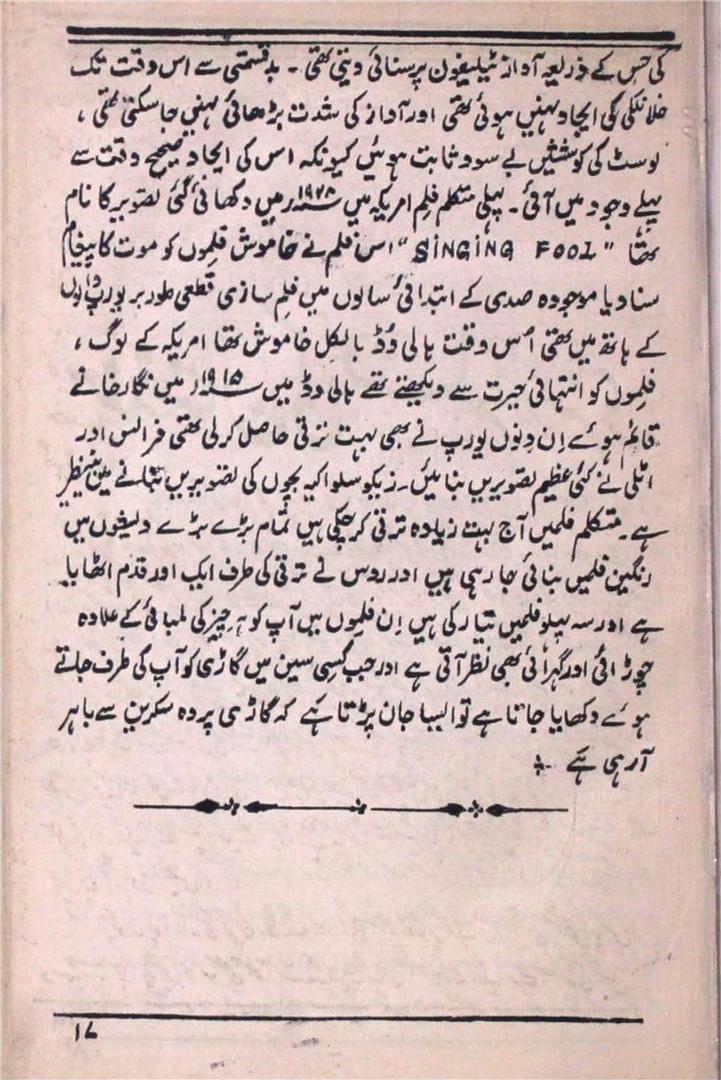 کی جس کے ذریعہ آواز ٹیلیفون پر سنائی دیتی تھی ۔ بدقسمتی سے اس وقت تک
خلانلکی کی ایجاد نہیں ہوئی تھی اور آواز کی شدت بڑھائی نہیں جا سکتی تھی ،
لوسٹ کی کوششیں بے سود ثابت ہوئیں کیونکہ اس کی ایجاد صحیح وقت سے
پہلے وجود میں آئی ۔ پہلی متکلم فلم امریکہ میں ۱۹۲۸ء میں دکھائی گئی تصویر کا نام
تھا " SINGING FOOL " اس فلم نے خاموش فلموں کو موت کا پیغام
سنا دیا موجودہ صدی کے ابتدائی سالوں میں فلم سازی قطعی طور پر یورپ والوں
کے ہاتھ میں تھی اُس وقت ہالی وُڈ بالکل خاموش تھا امریکہ کے لوگ ،
فلموں کو انتہائی حیرت سے دیکھتے تھے ہالی وڈ میں ۱۹۱۵ء میں نگار خانے
قائم ہوئے اِن دِنوں یورپ نے بھی بہت ترقی حاصل کر لی تھی فرانس اور
اٹلی نے کئی عظیم تصویریں بنائیں ۔ زیکوسلواکیہ بچوں کی تصویریں بنانے میں بینظیر
ہے ۔ متکلم فلمیں آج بہت زیادہ ترقی کر چکی ہیں تمام بڑے بڑے دلیغوں میں
رنگین فلمیں بنائی جا رہی ہیں اور روس نے ترقی کی طرف ایک اور قدم اٹھایا
ہے اور سہ پہلو فلمیں تیار کی ہیں اِن فلموں میں آپ کو ہر چیز کی لمبائی کے علاوہ
چوڑائی اور گہرائی بھی نظر آتی ہے اور جب کسی سین میں گاڑی کو آپ کی طرف جاتے
ہوئے دکھایا جاتا ہے تو ایسا جان پڑتا ہے کہ گاڑی پردہ سکرین سے باہر
آ رہی ہے ۔
۱۷